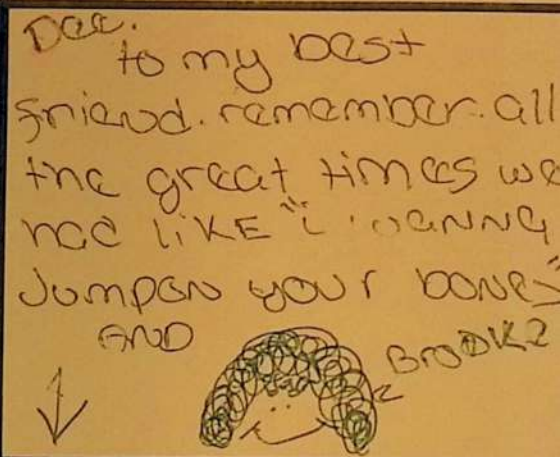 Dee.
to my best
friend. remember. all
the great times we
had like "i wanna
Jumpon your bones"
AND
Brooke